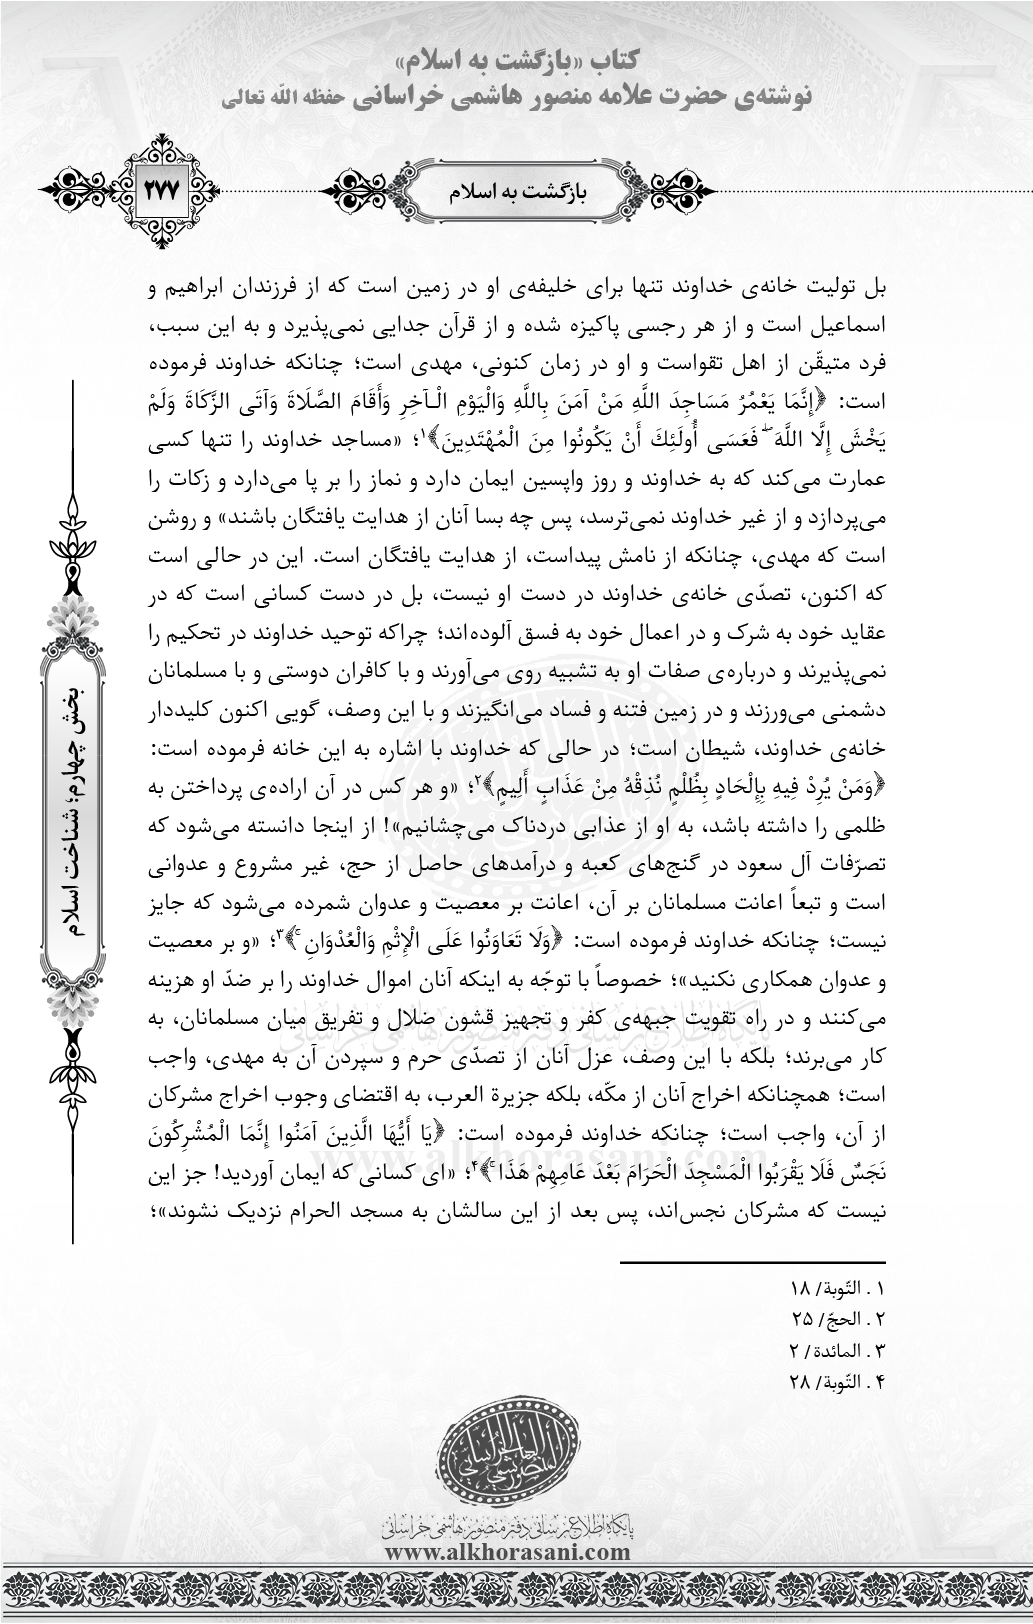 کتاب «بازگشت به اسلام»
نوشته‌ی حضرت علامه منصور هاشمی خراسانی حفظه الله تعالی
بازگشت به اسلام
۲۷۷
بل تولیت خانه‌ی خداوند تنها برای خلیفه‌ی او در زمین است که از فرزندان ابراهیم و
اسماعیل است و از هر رجسی پاکیزه شده و از قرآن جدایی نمی‌پذیرد و به این سبب،
فرد متیقّن از اهل تقواست و او در زمان کنونی، مهدی است؛ چنانکه خداوند فرموده
است: ﴿إِنَّمَا يَعْمُرُ مَسَاجِدَ اللَّهِ مَنْ آمَنَ بِاللَّهِ وَالْيَوْمِ الْآخِرِ وَأَقَامَ الصَّلَاةَ وَآتَى الزَّكَاةَ وَلَمْ
يَخْشَ إِلَّا اللَّهَ ۖ فَعَسَى أُولَئِكَ أَنْ يَكُونُوا مِنَ الْمُهْتَدِينَ﴾۱؛ «مساجد خداوند را تنها کسی
عمارت می‌کند که به خداوند و روز واپسین ایمان دارد و نماز را بر پا می‌دارد و زکات را
می‌پردازد و از غیر خداوند نمی‌ترسد، پس چه بسا آنان از هدایت یافتگان باشند» و روشن
است که مهدی، چنانکه از نامش پیداست، از هدایت یافتگان است. این در حالی است
که اکنون، تصدّی خانه‌ی خداوند در دست او نیست، بل در دست کسانی است که در
عقاید خود به شرک و در اعمال خود به فسق آلوده‌اند؛ چراکه توحید خداوند در تحکیم را
نمی‌پذیرند و درباره‌ی صفات او به تشبیه روی می‌آورند و با کافران دوستی و با مسلمانان
دشمنی می‌ورزند و در زمین فتنه و فساد می‌انگیزند و با این وصف، گویی اکنون کلیددار
خانه‌ی خداوند، شیطان است؛ در حالی که خداوند با اشاره به این خانه فرموده است:
﴿وَمَنْ يُرِدْ فِيهِ بِإِلْحَادٍ بِظُلْمٍ نُذِقْهُ مِنْ عَذَابٍ أَلِيمٍ﴾۲؛ «و هر کس در آن اراده‌ی پرداختن به
ظلمی را داشته باشد، به او از عذابی دردناک می‌چشانیم»! از اینجا دانسته می‌شود که
تصرّفات آل سعود در گنج‌های کعبه و درآمدهای حاصل از حج، غیر مشروع و عدوانی
است و تبعاً اعانت مسلمانان بر آن، اعانت بر معصیت و عدوان شمرده می‌شود که جایز
نیست؛ چنانکه خداوند فرموده است: ﴿وَلَا تَعَاوَنُوا عَلَى الْإِثْمِ وَالْعُدْوَانِ ۚ﴾۳؛ «و بر معصیت
و عدوان همکاری نکنید»؛ خصوصاً با توجّه به اینکه آنان اموال خداوند را بر ضدّ او هزینه
می‌کنند و در راه تقویت جبهه‌ی کفر و تجهیز قشون ضلال و تفریق میان مسلمانان، به
کار می‌برند؛ بلکه با این وصف، عزل آنان از تصدّی حرم و سپردن آن به مهدی، واجب
است؛ همچنانکه اخراج آنان از مکّه، بلکه جزیرة العرب، به اقتضای وجوب اخراج مشرکان
از آن، واجب است؛ چنانکه خداوند فرموده است: ﴿يَا أَيُّهَا الَّذِينَ آمَنُوا إِنَّمَا الْمُشْرِكُونَ
نَجَسٌ فَلَا يَقْرَبُوا الْمَسْجِدَ الْحَرَامَ بَعْدَ عَامِهِمْ هَذَا ۚ﴾۴؛ «ای کسانی که ایمان آوردید! جز این
نیست که مشرکان نجس‌اند، پس بعد از این سالشان به مسجد الحرام نزدیک نشوند»؛
بخش چهارم؛ شناخت اسلام
۱ . التّوبة/ ۱۸
۲ . الحجّ/ ۲۵
۳ . المائدة/ ۲
۴ . التّوبة/ ۲۸
پایگاه اطلاع‌رسانی دفتر منصور هاشمی خراسانی
www.alkhorasani.com